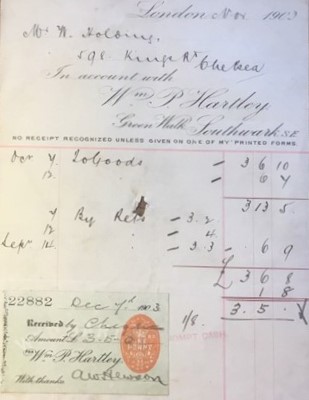 London Nov 1903
Mr W. Holding,
598 Kings Rd Chelsea
In account with
Wm. P. Hartley
Green Walk, Southwark S.E.
NO RECEIPT RECOGNIZED UNLESS GIVEN ON ONE OF MY PRINTED FORMS.
Oct 7 To Goods - 3 6 10
12 - " 6 7
3 13 5
7 By Rets - 3.2
12 - 4
Sepr 14 - 3.3 - 6 9
£ 3 6 8
1 8
3. 5.
1/8.
22882 Dec 7th 1903
Received by
Amount £ 3-5-
Wm. P. Hartley
With thanks